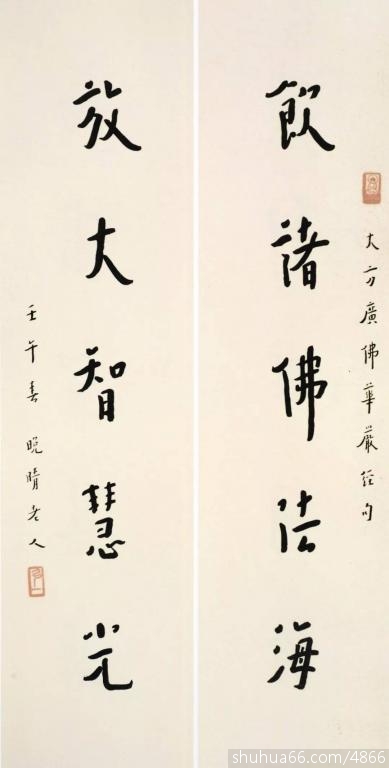 大方廣佛華嚴經句
飲諸佛法海
放大智慧光
壬午春晚晴老人
shuhua66.com/4866